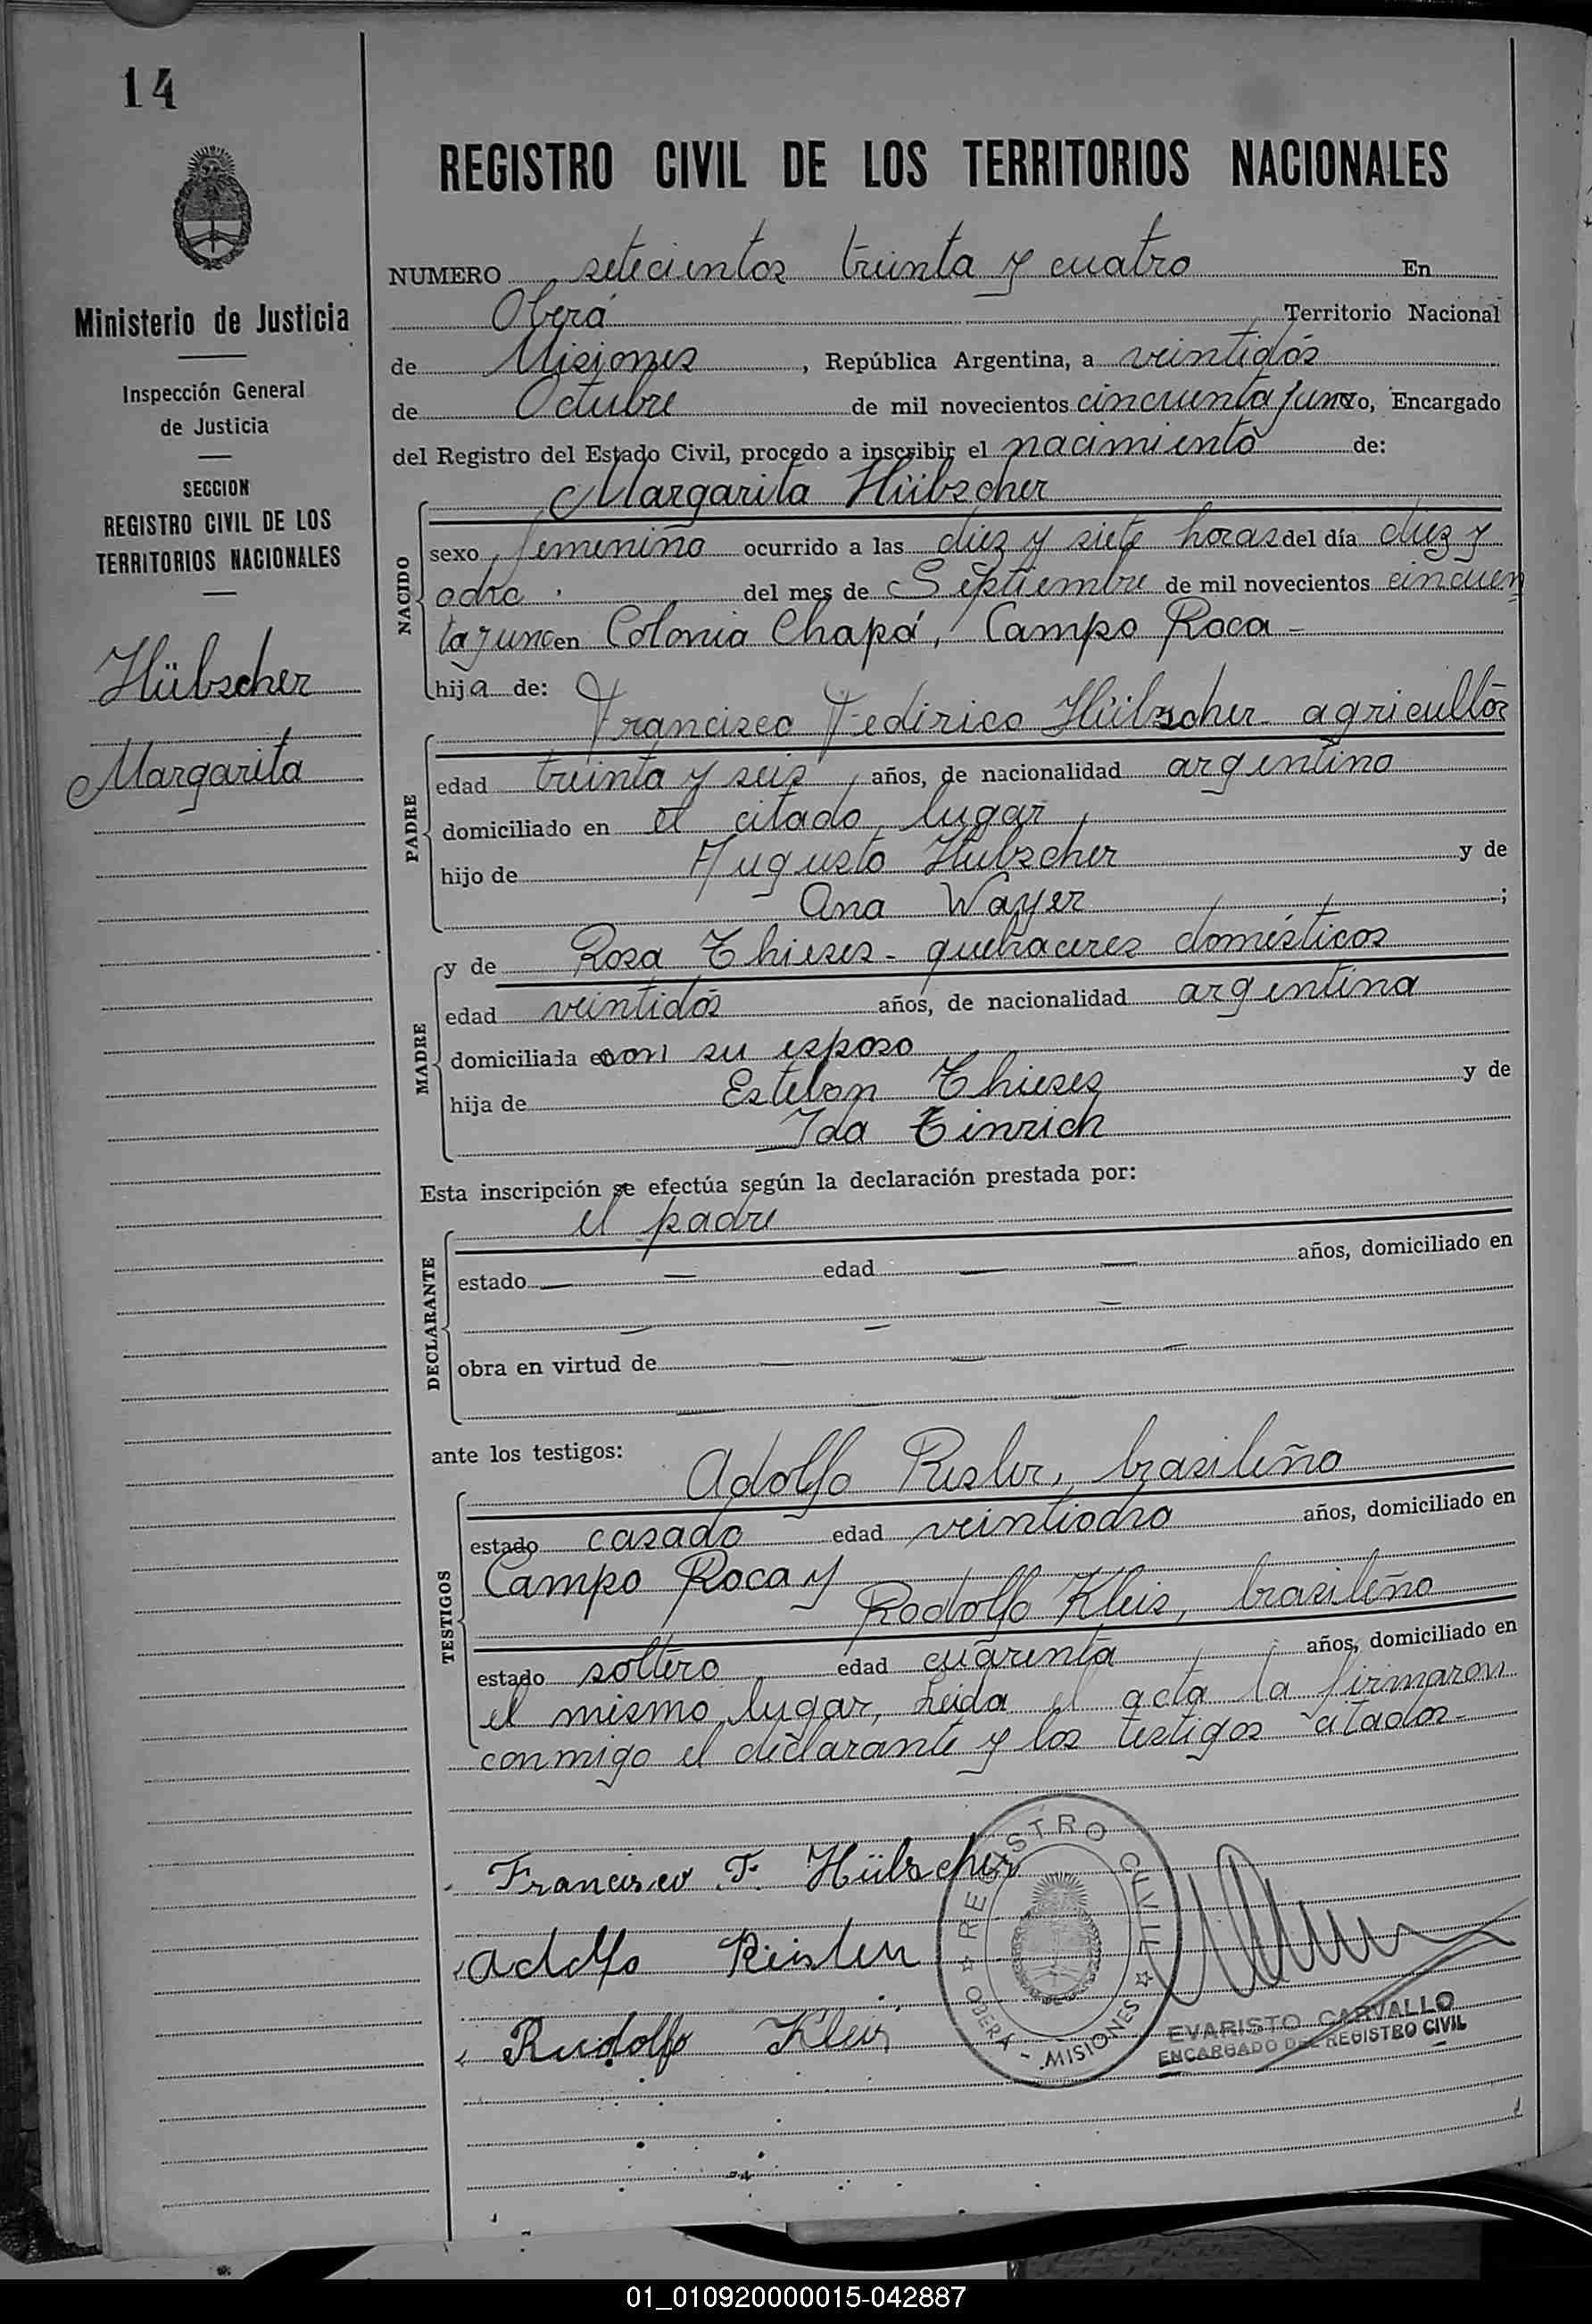 14
REGISTRO CIVIL DE LOS TERRITORIOS NACIONALES
NUMERO setecientos treinta y cuatro En
Oberá Territorio Nacional
de Misiones, República Argentina, a veintidós
de Octubre de mil novecientos cincuenta y uno yo, Encargado
del Registro del Estado Civil, procedo a inscribir el nacimiento de:
Margarita Hübscher
NACIDO
sexo femenino ocurrido a las diez y siete horas del día diez y
ocho del mes de Septiembre de mil novecientos cincuen
ta y uno en Colonia Chapá, Campo Roca -
hija de:
Francisco Federico Hübscher - agricultor
PADRE
edad treinta y seis años, de nacionalidad argentino
domiciliado en el citado lugar
hijo de Augusto Hübscher y de
Ana Wayer ;
MADRE
y de Rosa Thieses - quehaceres domésticos
edad veintidós años, de nacionalidad argentina
domiciliada en con su esposo
hija de Esteban Thieses y de
Ida Tinrich
Esta inscripción se efectúa según la declaración prestada por:
el padre
DECLARANTE
estado — — edad — — años, domiciliado en
— — —
obra en virtud de — — —
— — —
ante los testigos:
Adolfo Rister, brasileño
TESTIGOS
estado casado edad veintiocho años, domiciliado en
Campo Roca y
Rodolfo Kleis, brasileño
estado soltero edad cuarenta años, domiciliado en
el mismo lugar, Leida el acta la firmaron
conmigo el declarante y los testigos citados -
Francisco F. Hübscher
Adolfo Risten
Rudolfo Kleis
REGISTRO CIVIL
OBERA - MISIONES
EVARISTO CARVALLO
ENCARGADO DEL REGISTRO CIVIL
Ministerio de Justicia
Inspección General
de Justicia
SECCION
REGISTRO CIVIL DE LOS
TERRITORIOS NACIONALES
Hübscher
Margarita
01_010920000015-042887